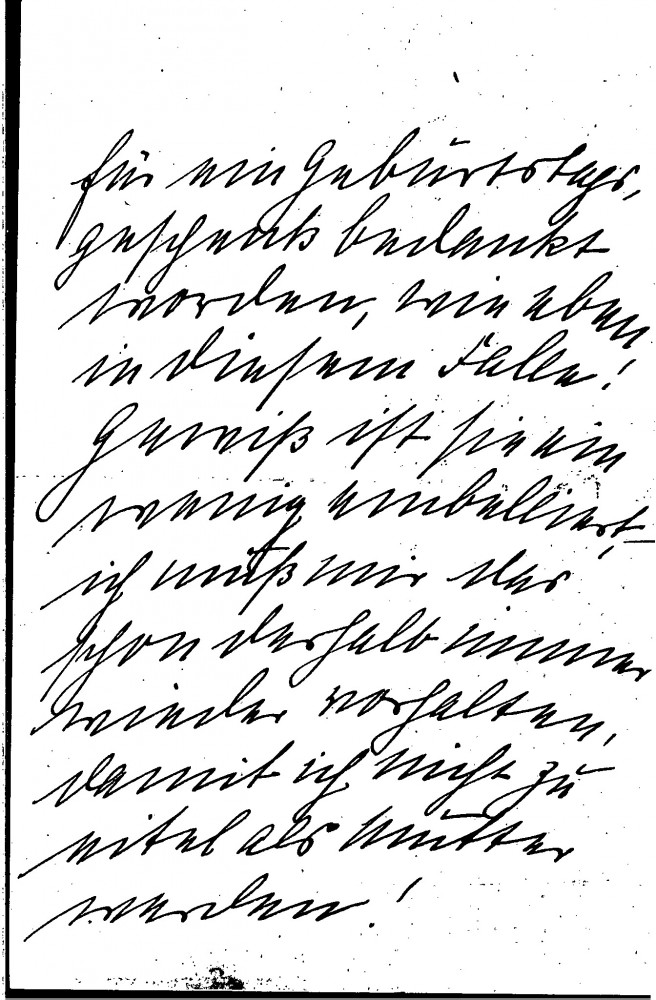 für ein Geburtstags-
geschenk bedankt
worden, wie eben
in diesem Falle!
Gewiß ist sie ein
wenig embelliert,
ich muß mir das
schon deshalb immer
wieder vorhalten,
damit ich nicht zu
eitel als Mutter
werden!